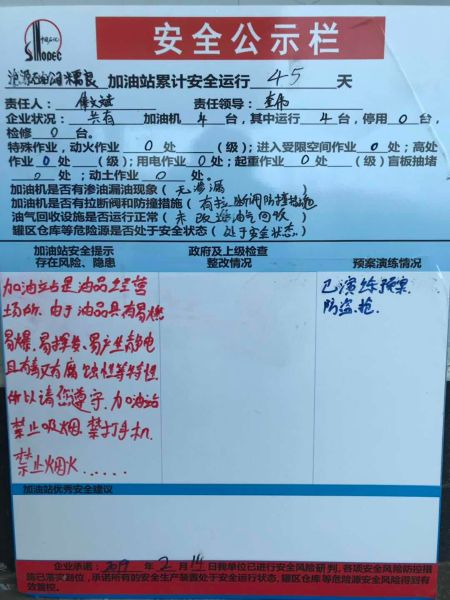 中国石化
SINOPEC
安全公示栏
加油站累计安全运行 45 天
责任人: 责任领导:
企业状况: 共有 加油机 4 台,其中运行 4 台,停用 0 台,
检修 0 台。
特殊作业,动火作业 0 处 (级);进入受限空间作业 0 处;高处
作业 0 处 (级);用电作业 0 处;起重作业 0 处;盲板抽堵
0 处;动土作业 0 处。
加油机是否有渗油漏油现象(无渗漏)
加油机是否有拉断阀和防撞措施(有拉断阀防撞措施)
油气回收设施是否运行正常(未改造油气回收)
罐区仓库等危险源是否处于安全状态(处于安全状态)
加油站安全提示
存在风险、隐患
政府及上级检查
整改情况
预案演练情况
加油站是油品经营
场所.由于油品具有易燃
易爆.易挥发、易产生静电
且有毒又有腐蚀性等特性
所以请您遵守.加油站
禁止吸烟.禁打手机.
禁止烟火......
已演练预案
防盗抢.
加油站优秀安全建议
企业承诺:2019 年 2 月 14 日我单位已进行安全风险研判,各项安全风险防控措
施已落实到位,承诺所有的安全生产装置处于安全运行状态,罐区仓库等危险源安全风险得到有
效管控。